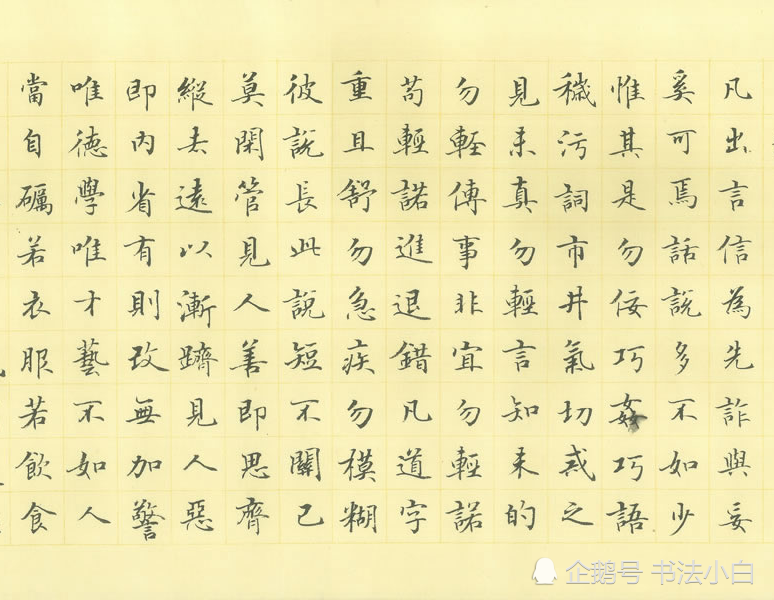 凡出言信為先詐與妄
奚可焉話說多不如少
惟其是勿佞巧姦巧語
穢污詞市井氣切戒之
見未真勿輕言知未的
勿軽傳事非宜勿輕諾
苟輕諾進退錯凡道字
重且舒勿急疾勿模糊
彼說長此說短不關己
莫閑管見人善即思齊
縱去遠以漸躋見人惡
即內省有則改無加警
唯德學唯才藝不如人
當自礪若衣服若飲食
企鹅号 书法小白